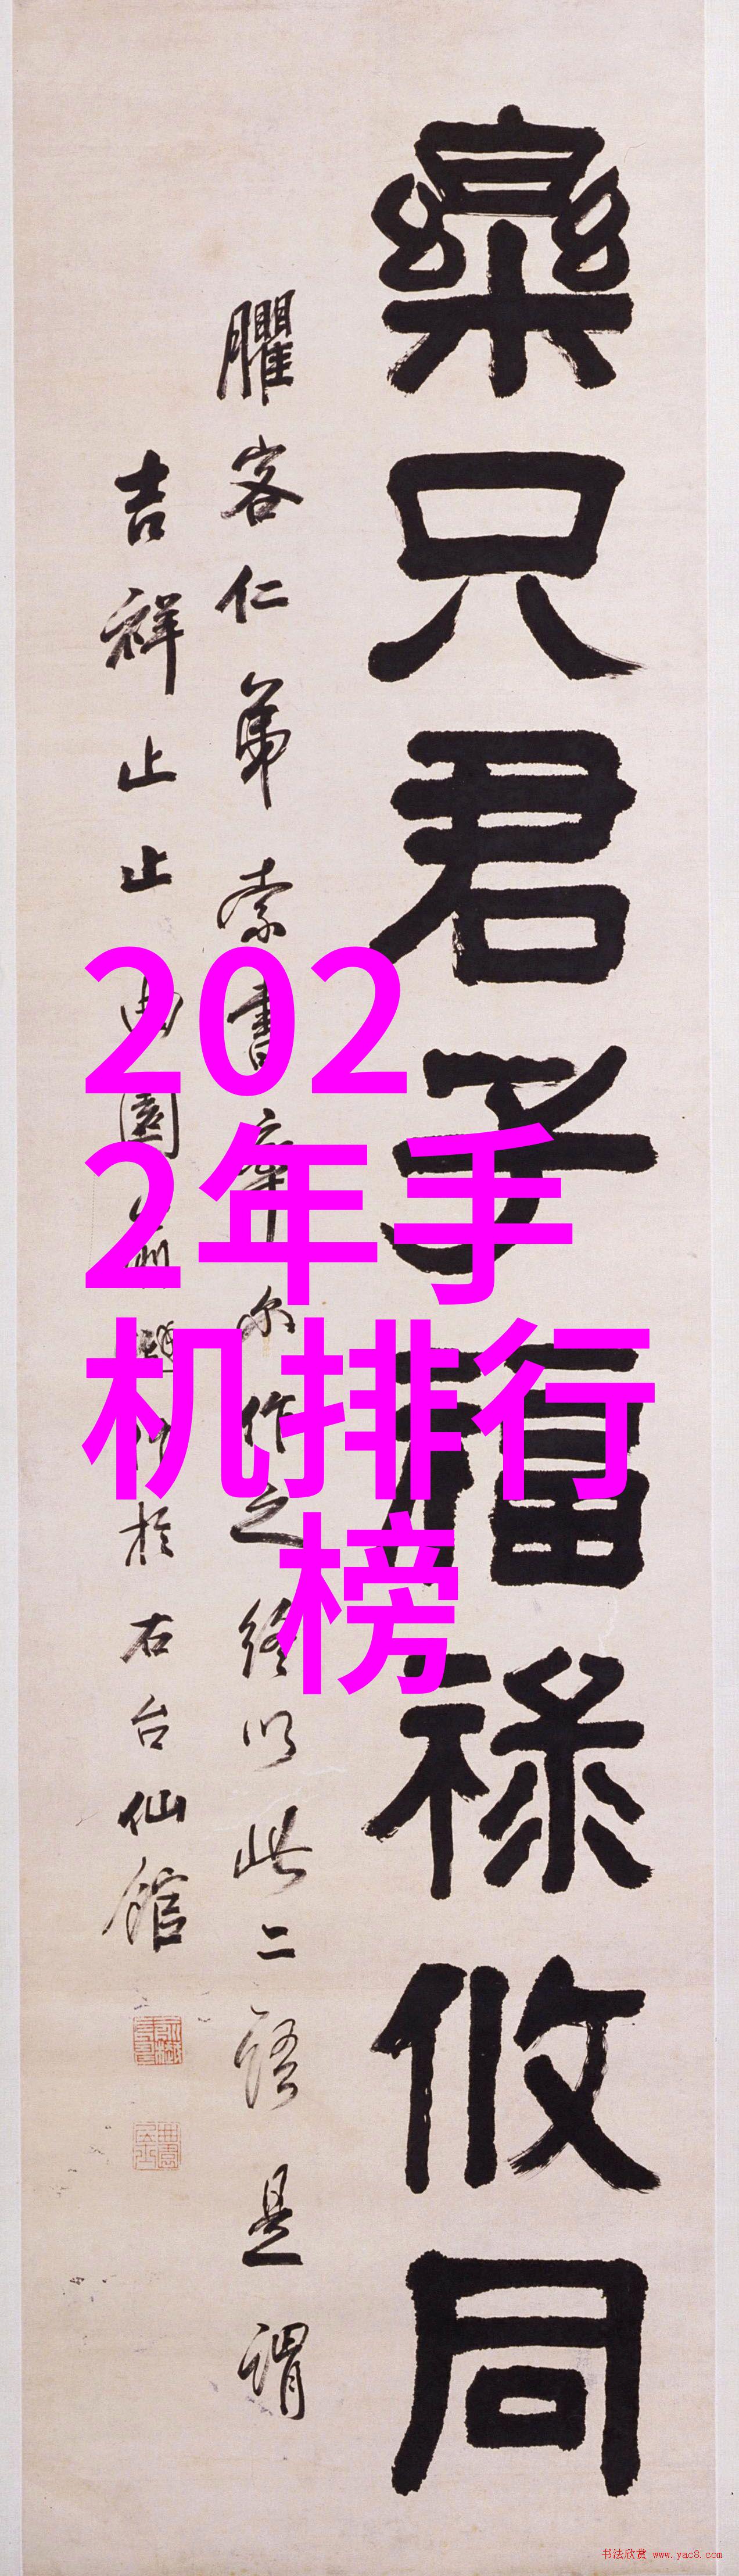 樂只君子福祿攸同
臞客仁弟索書率尔作之綴以此二語是謂
吉祥止止曲園俞樾時於右台仙館
202
2年手
机排行
榜
书法欣赏 www.yac8.com